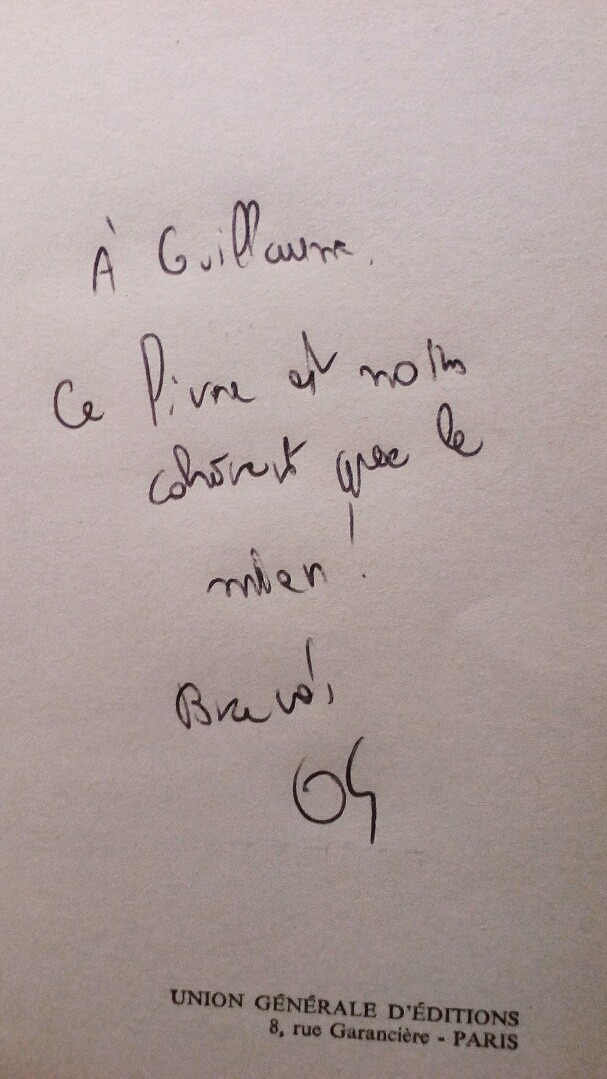 À Guillaume.
Ce livre est moins
cohérent que le
mien !
Bravo,
OG
UNION GÉNÉRALE D'ÉDITIONS
8, rue Garancière - PARIS